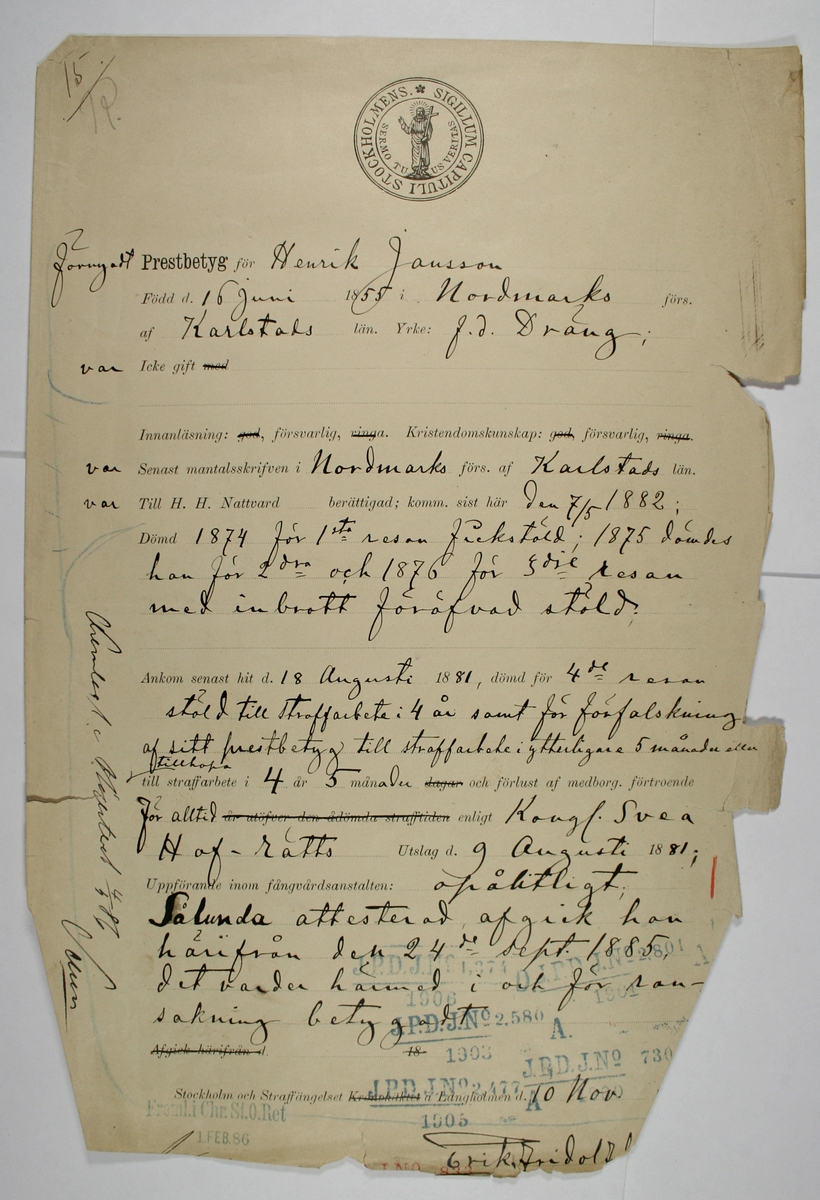 15/
SIGILLUM CAPITULI STOCKHOLMENS.
SERMO TUUS VERITAS
Förnyadt Prestbetyg för Henrik Jansson
Född d. 16 Juni 1855 i Nordmarks förs.
af Karlstads län. Yrke: f.d. Dräng;
var Icke gift med
Innanläsning: god, försvarlig, ringa. Kristendomskunskap: god, försvarlig, ringa.
var Senast mantalsskrifven i Nordmarks förs. af Karlstads län.
var Till H. H. Nattvard berättigad; komm. sist här den 7/5 1882;
Dömd 1874 för 1sta resan fickstöld; 1875 dömdes
han för 2dra och 1876 för 3dje resan
med inbrott föröfvad stöld;
Ankom senast hit d. 18 Augusti 1881, dömd för 4de resan
stöld till straffarbete i 4 år samt för förfalskning
af sitt prestbetyg till straffarbete i ytterligare 5 månader eller
tillhopa
till straffarbete i 4 år 5 månader dagar och förlust af medborg. förtroende
för alltid år utöfver den ådömda strafftiden enligt Kongl. Svea
Hof-Rätts Utslag d. 9 Augusti 1881;
Uppförande inom fångvårdsanstalten: opålitligt;
Sålunda attesterad afgick han
härifrån den 24de Sept. 1885,
det varder härmed i och för ran-
sakning betygadt
Afgick härifrån d. 18
Stockholm och Straffängelset å Långholmen d. 10 Nov
Erik Fridolf
J.P.D.J.Nº 2.580 A.
1903
J.P.D.J.Nº 730
J.P.D.J.Nº 3.477 A
1905
Freml. i Chr. St. O. Ret
1. FEB. 86